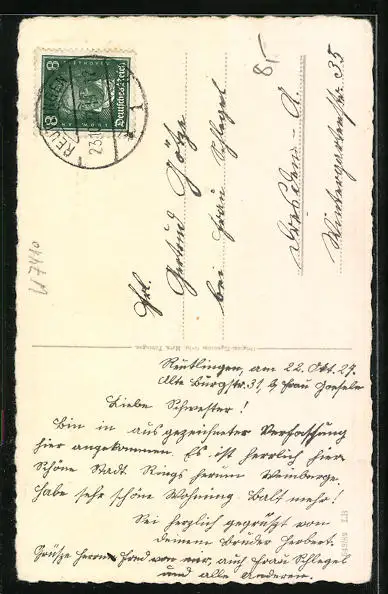 8
8
Deutsches Reich
REUTLINGEN
23.10
8,-
Frl.
Gertrud Götze
bei Frau Schlegel
Dresden-A.
Wintergartenstr. 35
W7410
Reutlingen, am 22. Okt. 29.
Alte Burgstr. 31, b. Frau
Liebe Schwester!
Bin in ausgezeichneter Verfassung
hier angekommen. Es ist herrlich hier.
Schöne Stadt. Rings herum Weinberge.
Habe sehr schöne Wohnung. Balt mehr!
Sei herzlich gegrüsst von
deinem Bruder Herbert.
Grüsze Herrn Fred von mir, auch Frau Schlegel
und alle Anderen.